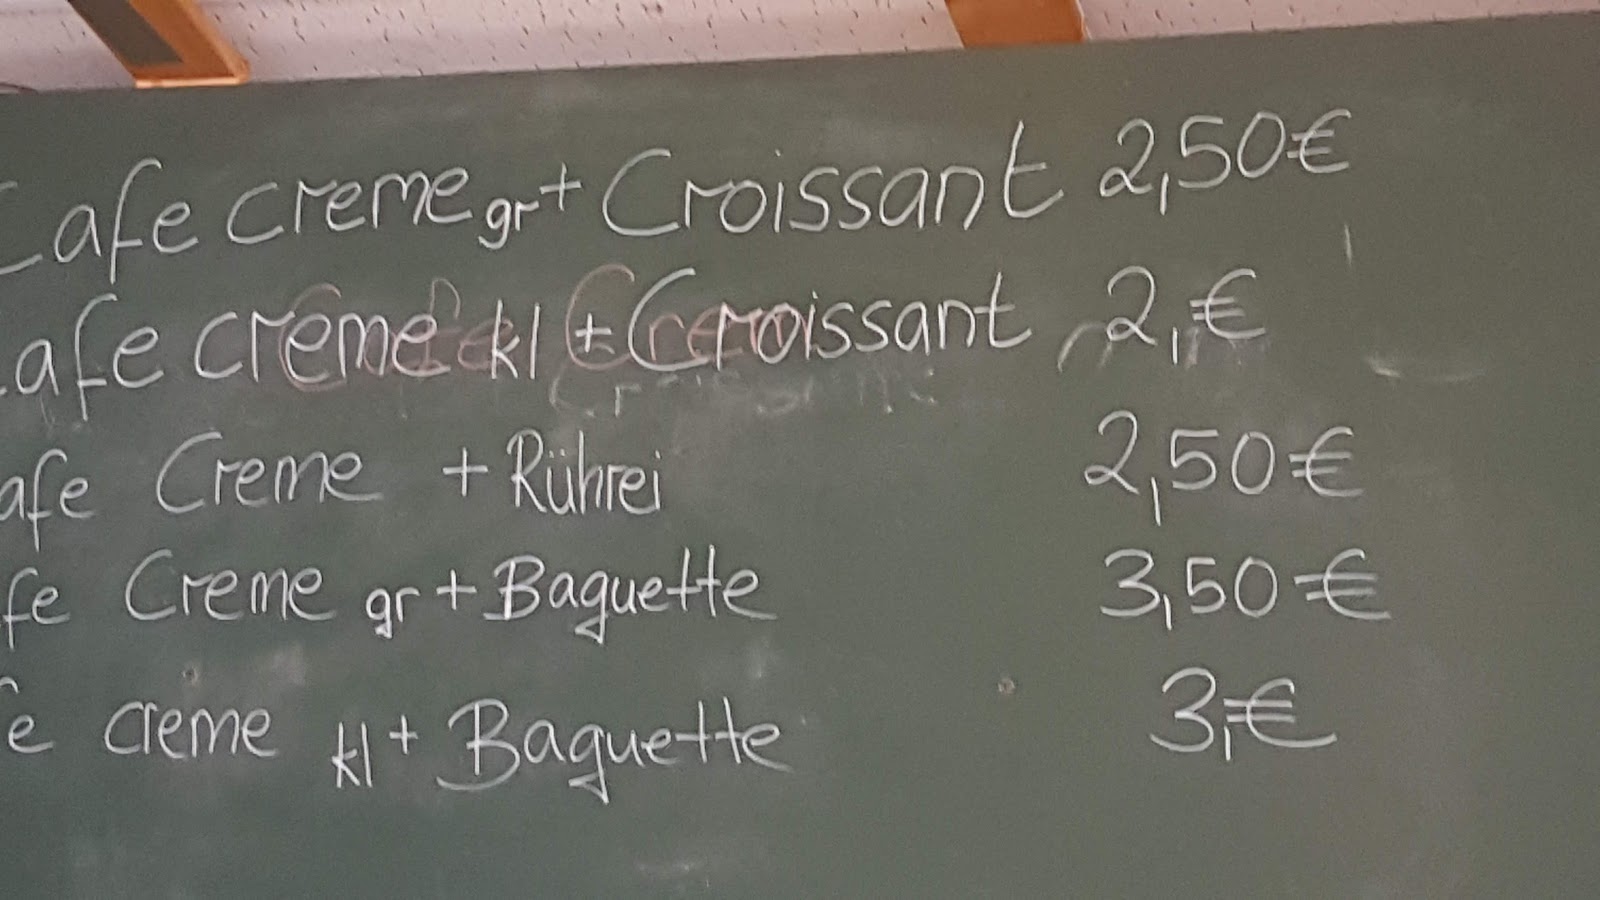 Cafe creme gr + Croissant 2,50€
Cafe creme kl + Croissant 2,€
afe Creme + Rührei 2,50€
fe Creme gr + Baguette 3,50€
fe creme kl + Baguette 3,€